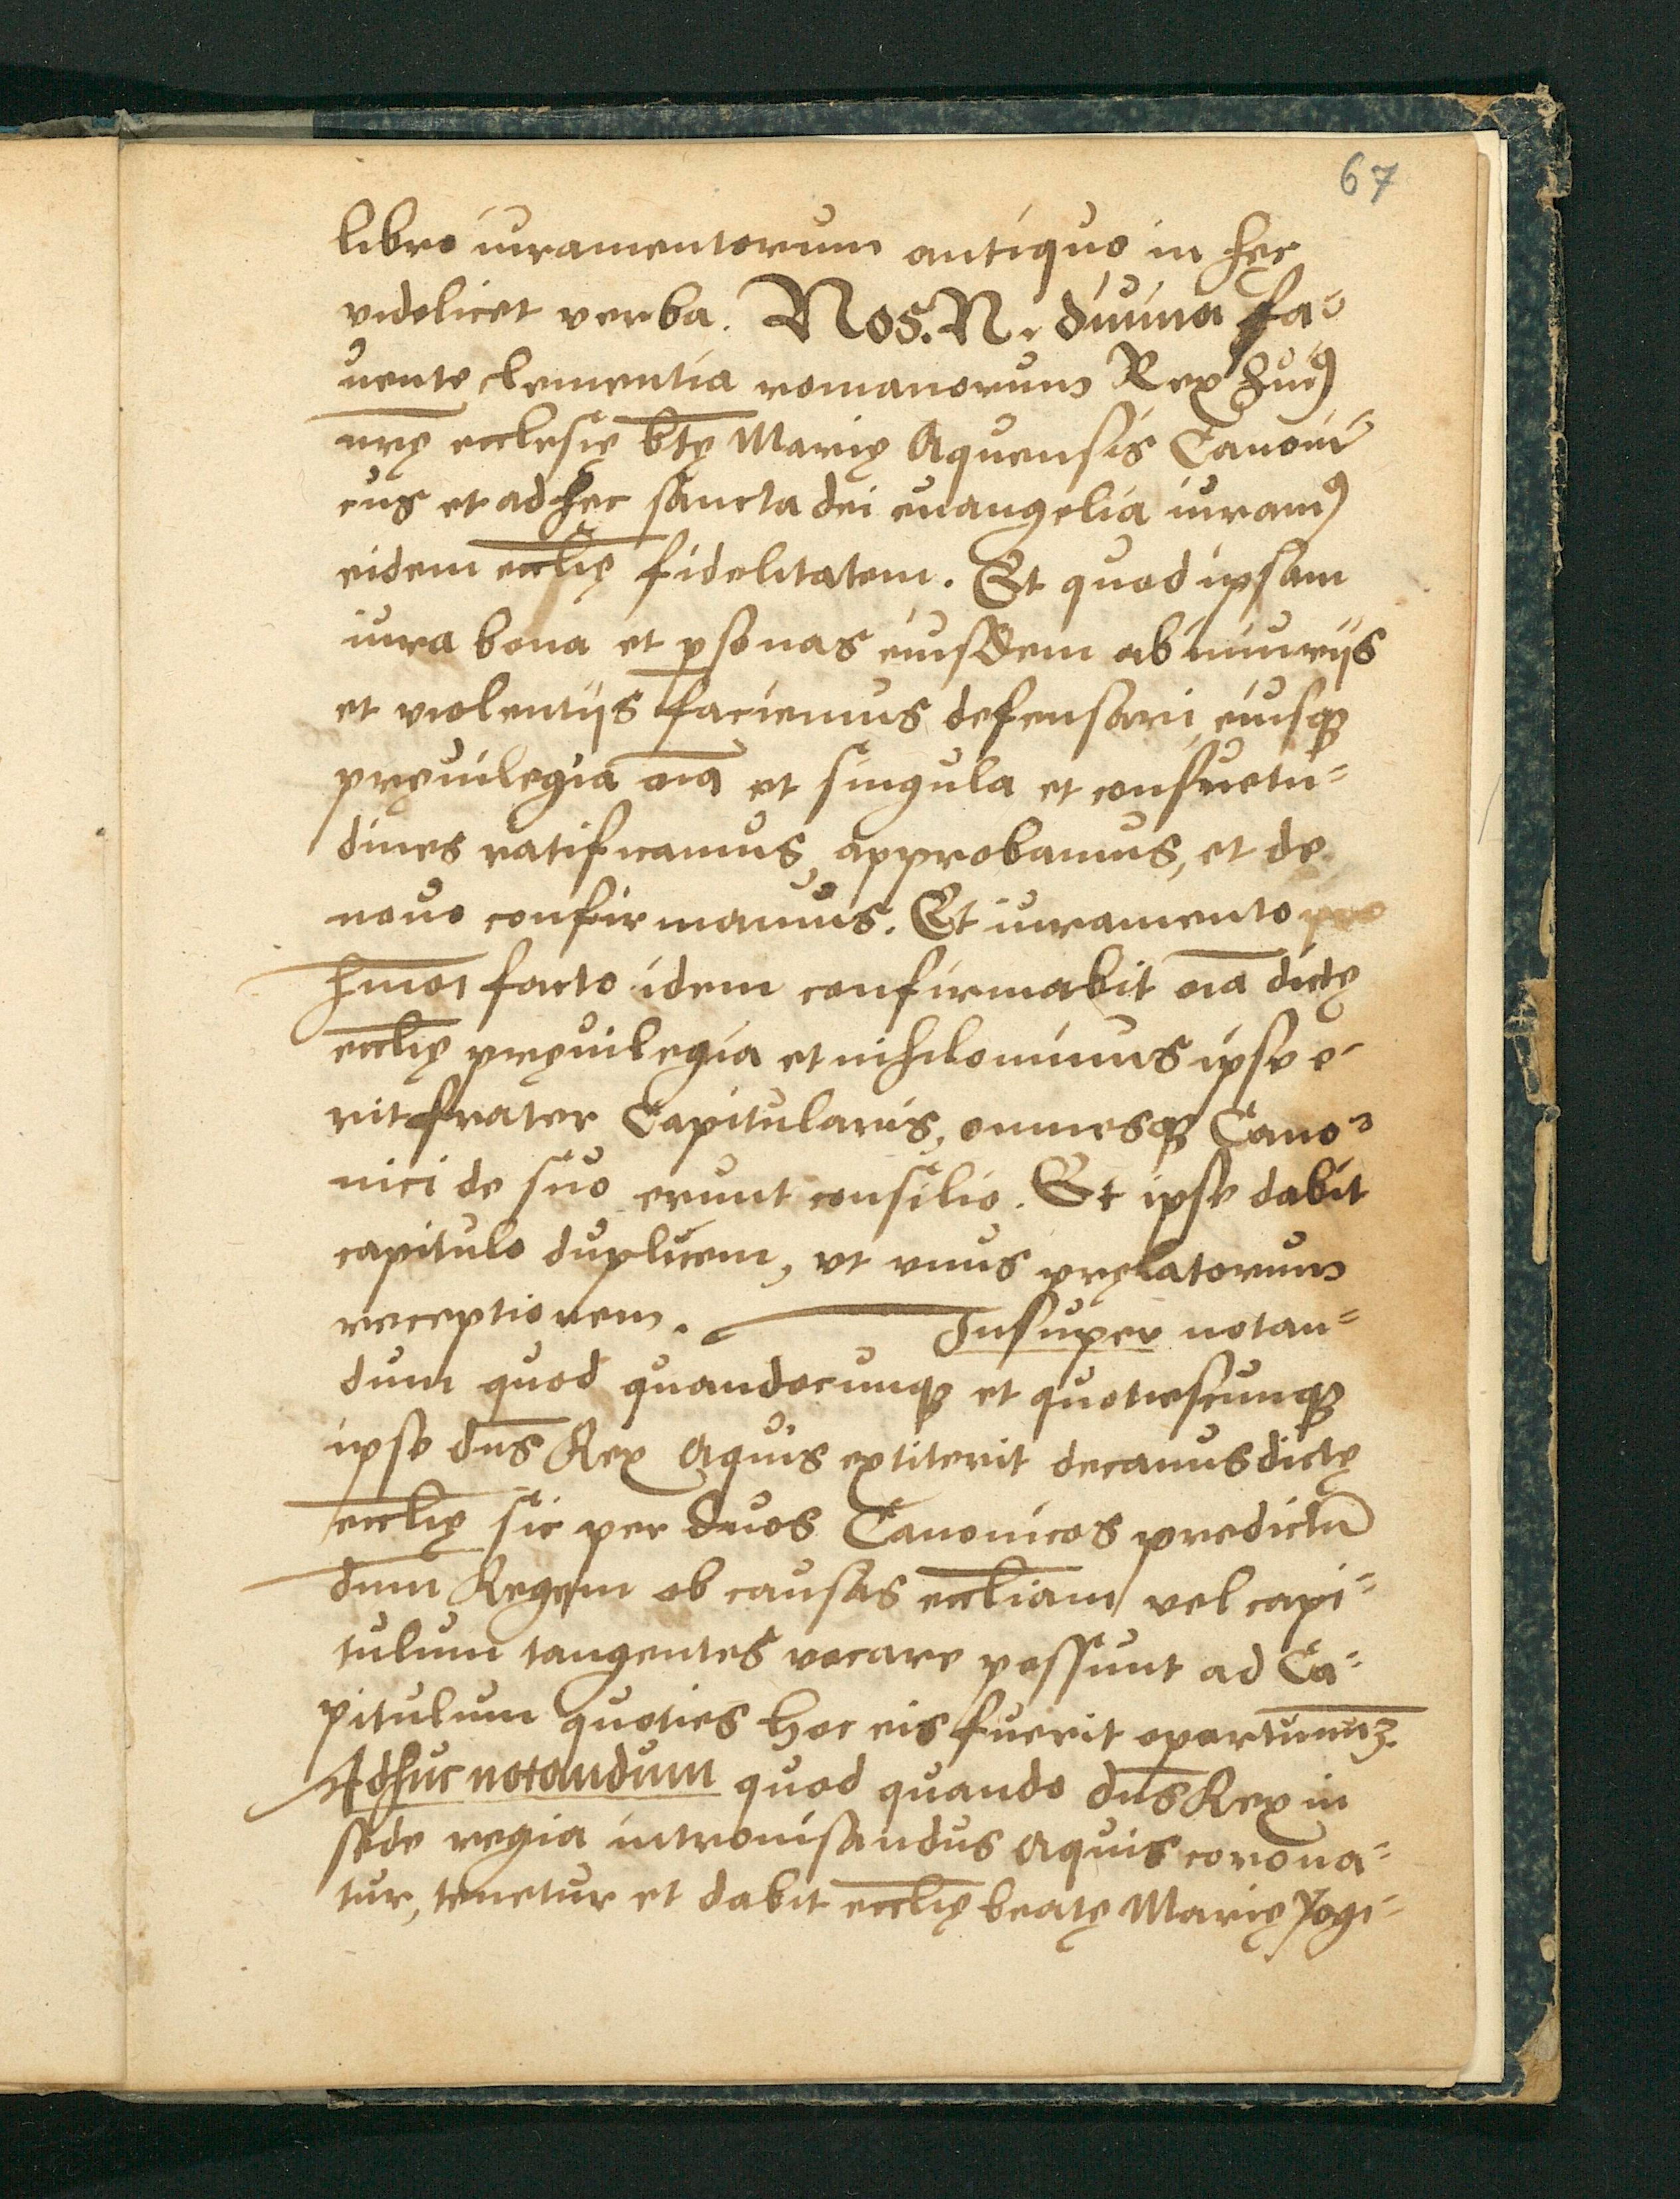 67
libro iuramentorum antiquo in hęc
videlicet verba. Nos. N. diuina fa-
uente clementia romanorum Rex huiꝰ
nr̄ę ecclesię bt̄ę Marię Aquensis Canoni-
cus et ad hec sancta dei euangelia iuramꝰ
eidem eccl̄ię fidelitatem. Et quod ipsam
iura bona et ꝑsonas eiusdem ab iniurijs
et violentijs faciemus defensari eiusqꝫ
pręuilegia oīa et singula et consuetu=
dines ratificamus, approbamus, et de
nouo confirmamus. Et iuramento pro
hmōi facto idem confirmabit oīa dictę
eccl̄ię pręuilegia et nihilominus ipse e-
rit frater Capitularis, omnesqꝫ Cano-
nici de suo erunt consilio. Et ipse dabit
capitulo duplicem, vt vnus pręlatorum
receptionem. Insuper notan=
dum quod quandocunqꝫ et quotiescunqꝫ
ipse dn̄s Rex Aquis extiterit decanus dictę
eccl̄ię sic per duos Canonicos predictū
dn̄m Regem ob causas eccl̄iam vel capi=
tulum tangentes vocare possunt ad Ca=
pitulum quoties hoc eis fuerit oportunūꝫ.
Adhuc notandum quod quando dn̄s Rex in
sede regia intronisandus Aquis corona=
tur, tenetur et dabit eccl̄ię beatę Marię